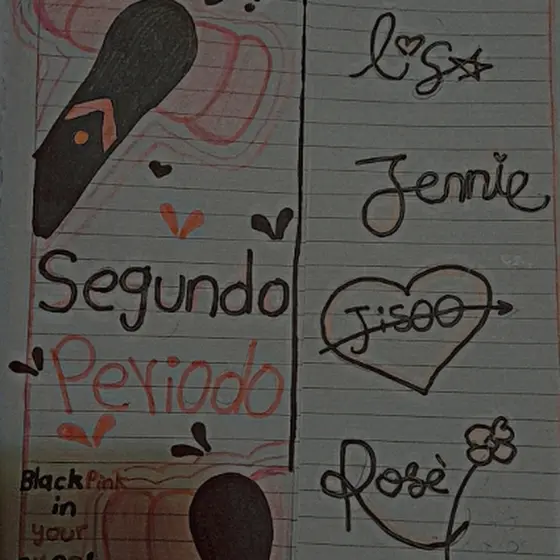 Segundo
Periodo
Black Pink
in
your
lisa
Jennie
Jisoo
Rosè